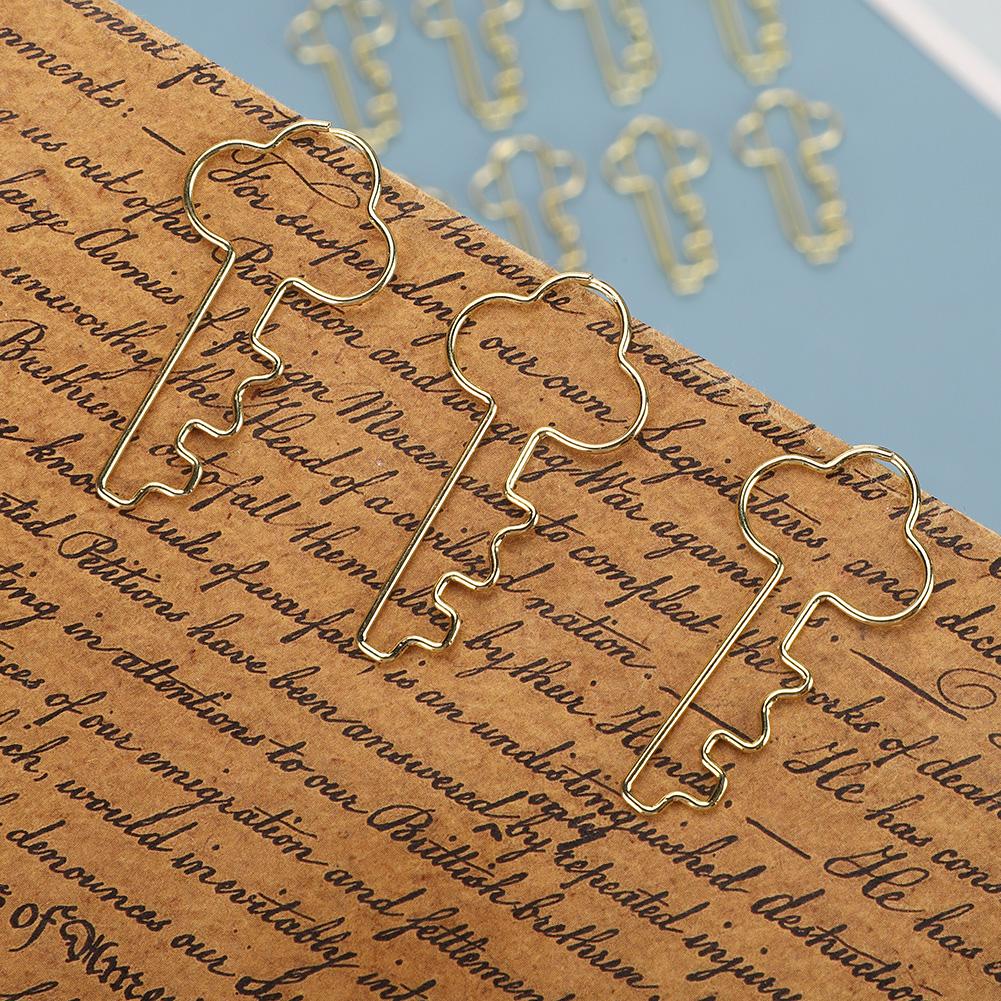 ument for introducing the same absolute rule into these
nments: — For suspending our own Legislatures, and decl
g us out of his Protection and waging War against us.
large Armies of foreign Mercenaries to compleat the works of death
unworthy the Head of a civilized nation. — He has cons
Brethren or to fall themselves by their Hands. — He has
e known rule of warfare, is an undistinguished destructio
ated Petitions have been answered only by repeated injury
ting in attentions to our Brittish brethren
ces of our emigration and settlemen
ich, would inevitably int
denounces our
s of Ame